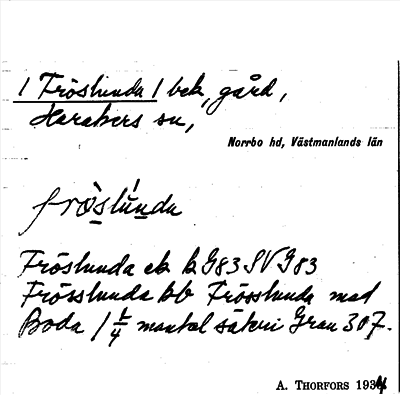 / Fröslunda / bek, gård,
Harakers sn,
Norrbo hd, Västmanlands län
fröslunda
Fröslunda ek b G83 SV G83
Frösslunda bb Frösslunda med
Boda / ¼ mantal säteri Grau 307.
A. THORFORS 1934